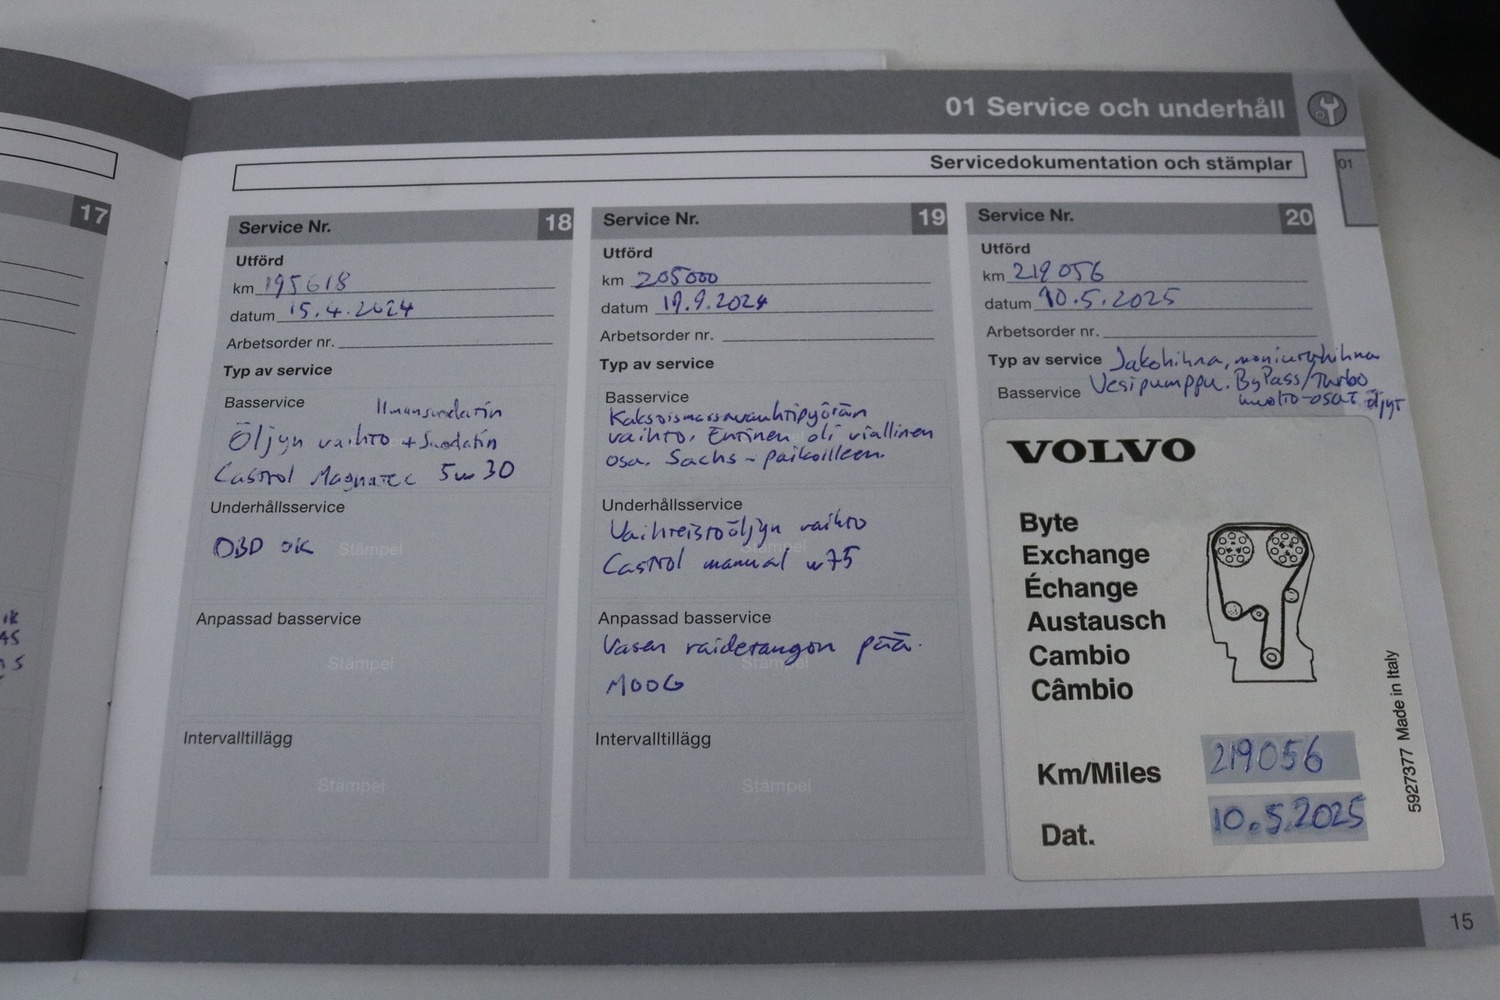 01 Service och underhåll
Servicedokumentation och stämplar
01
17
Service Nr. 18
Utförd
km 195618
datum 15.4.2024
Arbetsorder nr.
Typ av service
Basservice
Ilmansuodatin
Öljyn vaihto + Suodatin
Castrol Magnatec 5w30
Underhållsservice
OBD OK
Stämpel
Anpassad basservice
Stämpel
Intervalltillägg
Stämpel
Service Nr. 19
Utförd
km 205000
datum 19.9.2024
Arbetsorder nr.
Typ av service
Basservice
Kaksoismassavauhtipyörän
vaihto. Entinen oli viallinen
osa. Sachs - paikoilleen.
Underhållsservice
Vaihteistoöljyn vaihto
Stämpel
Castrol manual w75
Anpassad basservice
Vasen raidetangon pää.
Stämpel
MOOG
Intervalltillägg
Stämpel
Service Nr. 20
Utförd
km 219056
datum 10.5.2025
Arbetsorder nr.
Typ av service Jakohihna, moniurahihna
Basservice Vesipumppu. ByPass/Turbo
huolto-osat öljyt
VOLVO
Byte
Exchange
Échange
Austausch
Cambio
Câmbio
Km/Miles 219056
Dat. 10.5.2025
5927377 Made in Italy
15